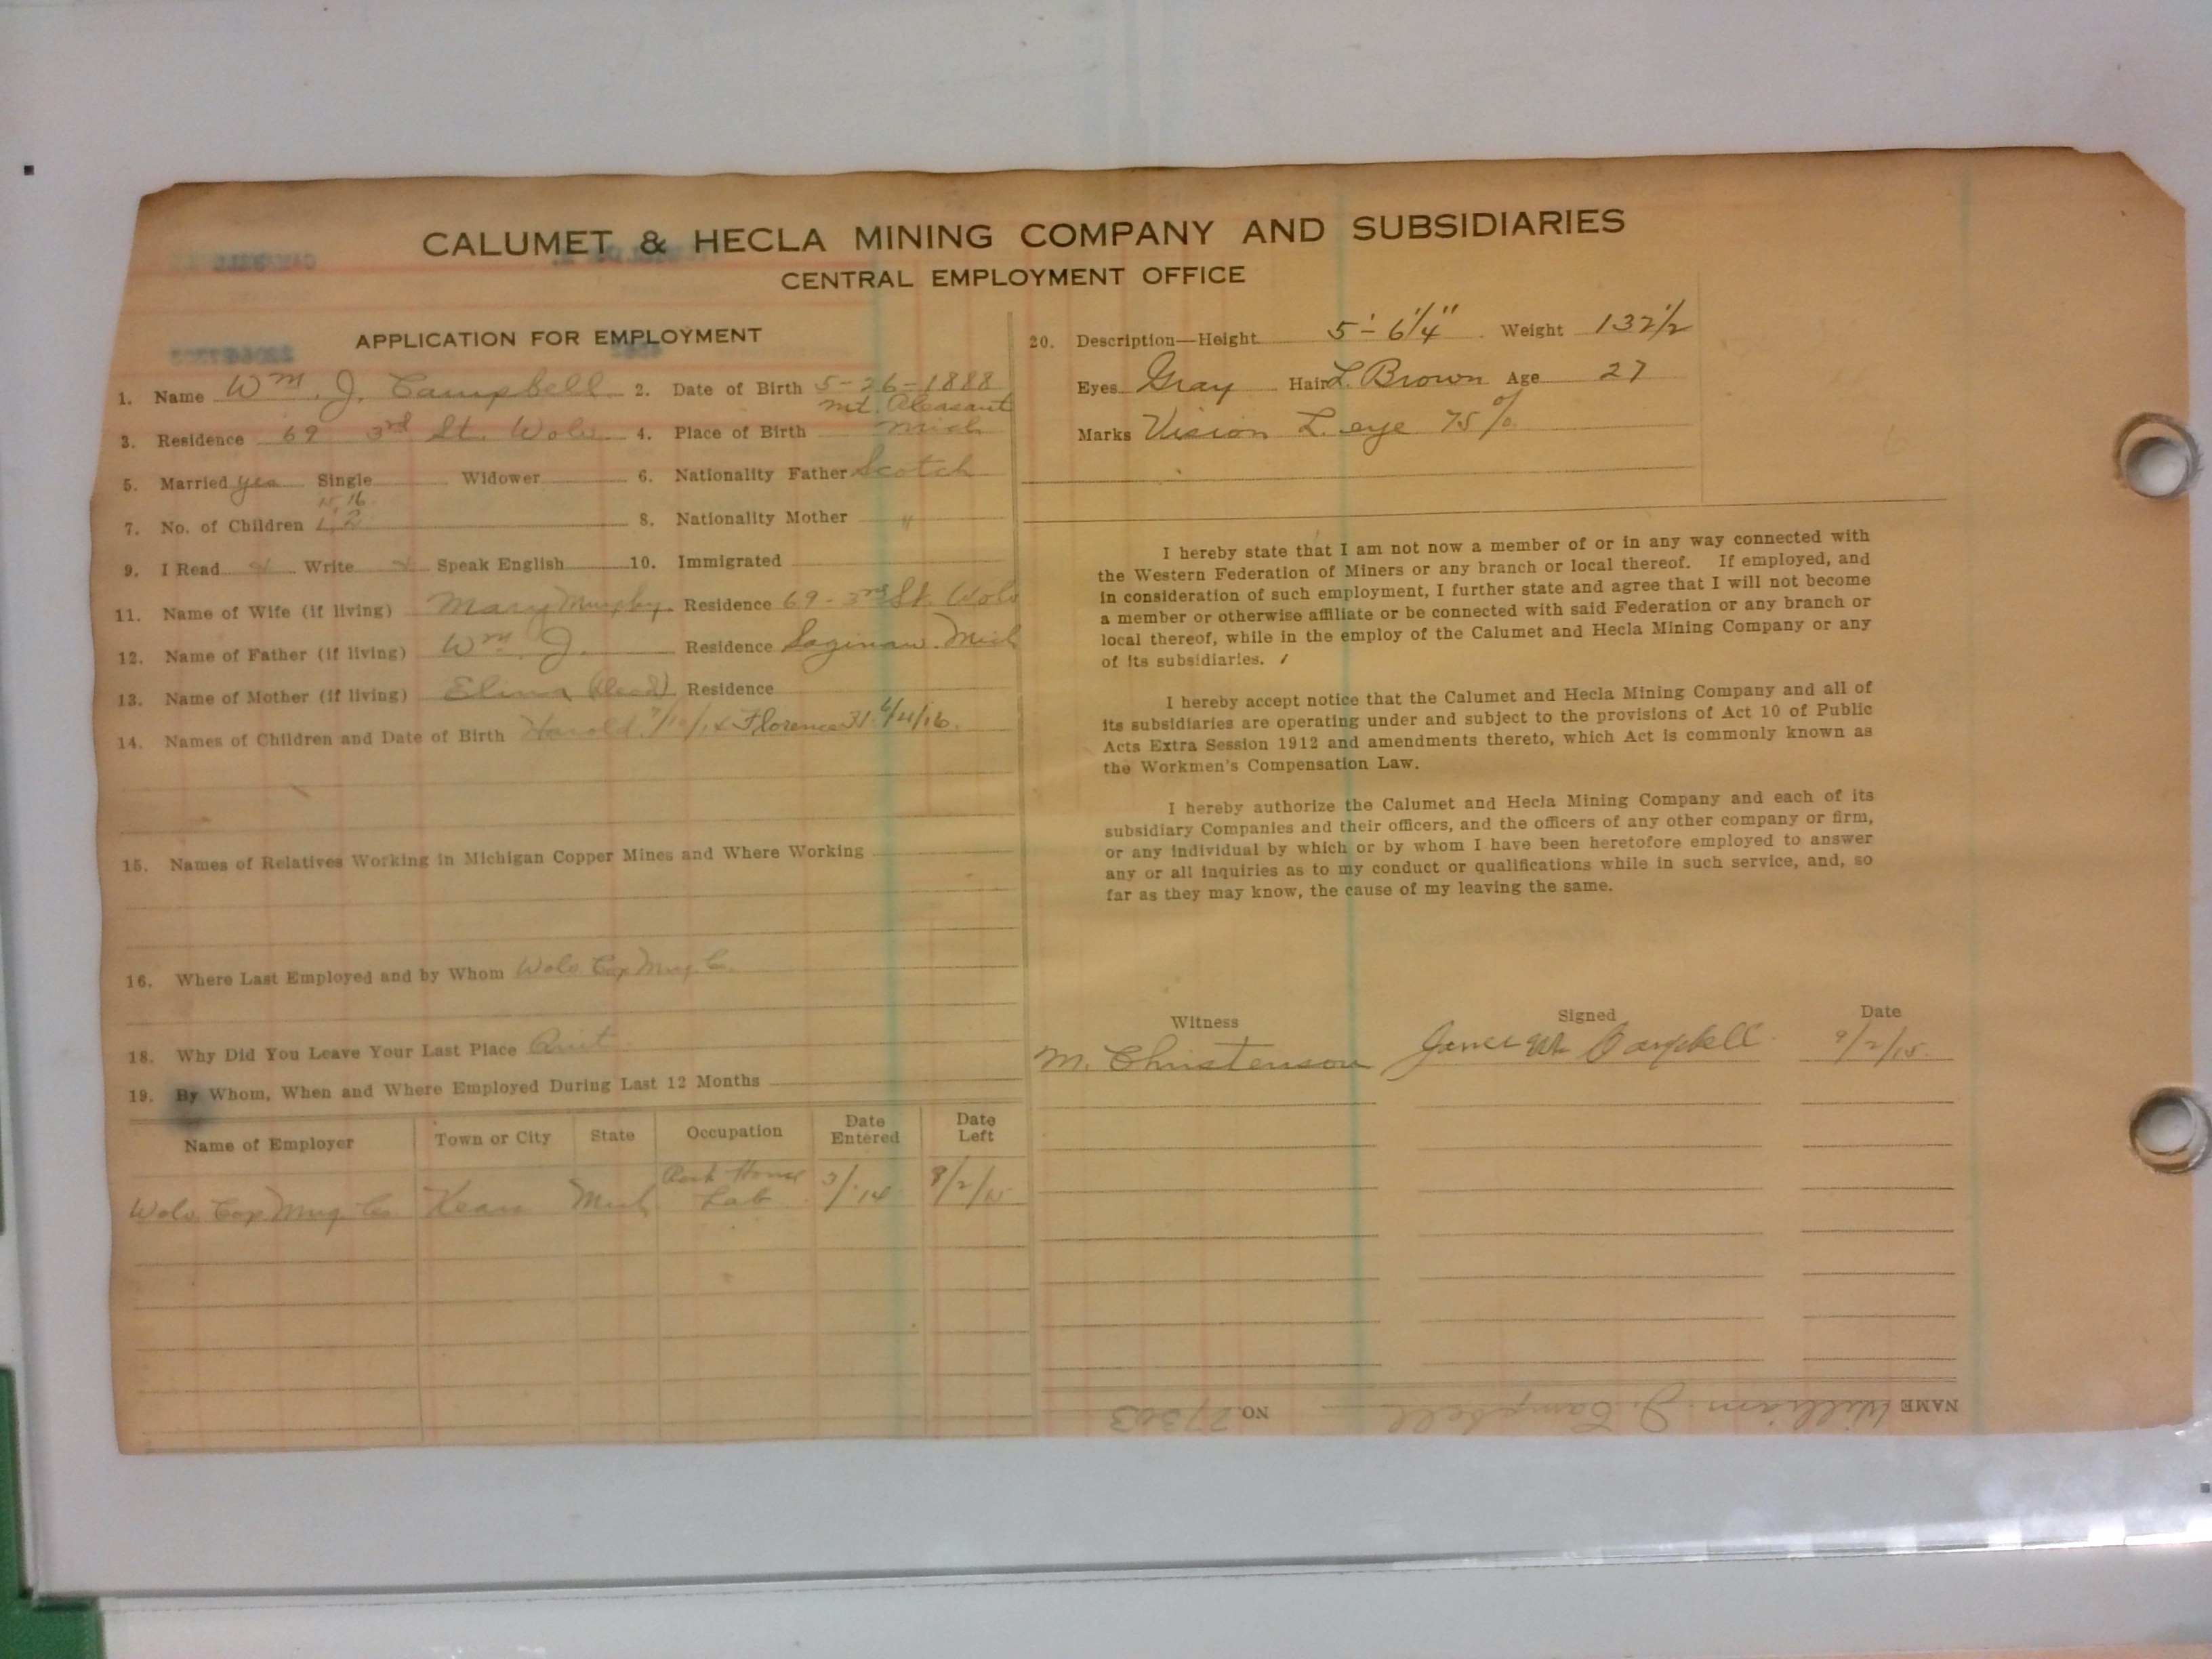 CALUMET & HECLA MINING COMPANY AND SUBSIDIARIES
CENTRAL EMPLOYMENT OFFICE
APPLICATION FOR EMPLOYMENT
1. Name Wm. J. Campbell 2. Date of Birth 5-26-1888
3. Residence 69 3rd St. Wolv. 4. Place of Birth Mt. Pleasant Mich
5. Married yes Single Widower 6. Nationality Father Scotch
15 16
7. No. of Children 1, 2 8. Nationality Mother "
9. I Read Write Speak English 10. Immigrated
11. Name of Wife (if living) Mary Murphy. Residence 69 - 3rd St. Wolv
12. Name of Father (if living) Wm. J. Residence Saginaw. Mich
13. Name of Mother (if living) (Dead) Residence
14. Names of Children and Date of Birth Harold. Florence
15. Names of Relatives Working in Michigan Copper Mines and Where Working
16. Where Last Employed and by Whom Wolv. Cop Mng. Co.
18. Why Did You Leave Your Last Place Quit
19. By Whom, When and Where Employed During Last 12 Months
Name of Employer Town or City State Occupation Date Entered Date Left
Wolv. Cop Mng. Co. Kear Mich Rock House Lab 3/14 9/2/15
20. Description—Height 5'-6 1/4" Weight 132 1/2
Eyes Gray Hair L. Brown Age 27
Marks Vision L. eye 75%
I hereby state that I am not now a member of or in any way connected with
the Western Federation of Miners or any branch or local thereof. If employed, and
in consideration of such employment, I further state and agree that I will not become
a member or otherwise affiliate or be connected with said Federation or any branch or
local thereof, while in the employ of the Calumet and Hecla Mining Company or any
of its subsidiaries.
I hereby accept notice that the Calumet and Hecla Mining Company and all of
its subsidiaries are operating under and subject to the provisions of Act 10 of Public
Acts Extra Session 1912 and amendments thereto, which Act is commonly known as
the Workmen's Compensation Law.
I hereby authorize the Calumet and Hecla Mining Company and each of its
subsidiary Companies and their officers, and the officers of any other company or firm,
or any individual by which or by whom I have been heretofore employed to answer
any or all inquiries as to my conduct or qualifications while in such service, and, so
far as they may know, the cause of my leaving the same.
Witness Signed Date
M. Christenson Campbell 9/2/15.
NAME William J. Campbell NO. 27303